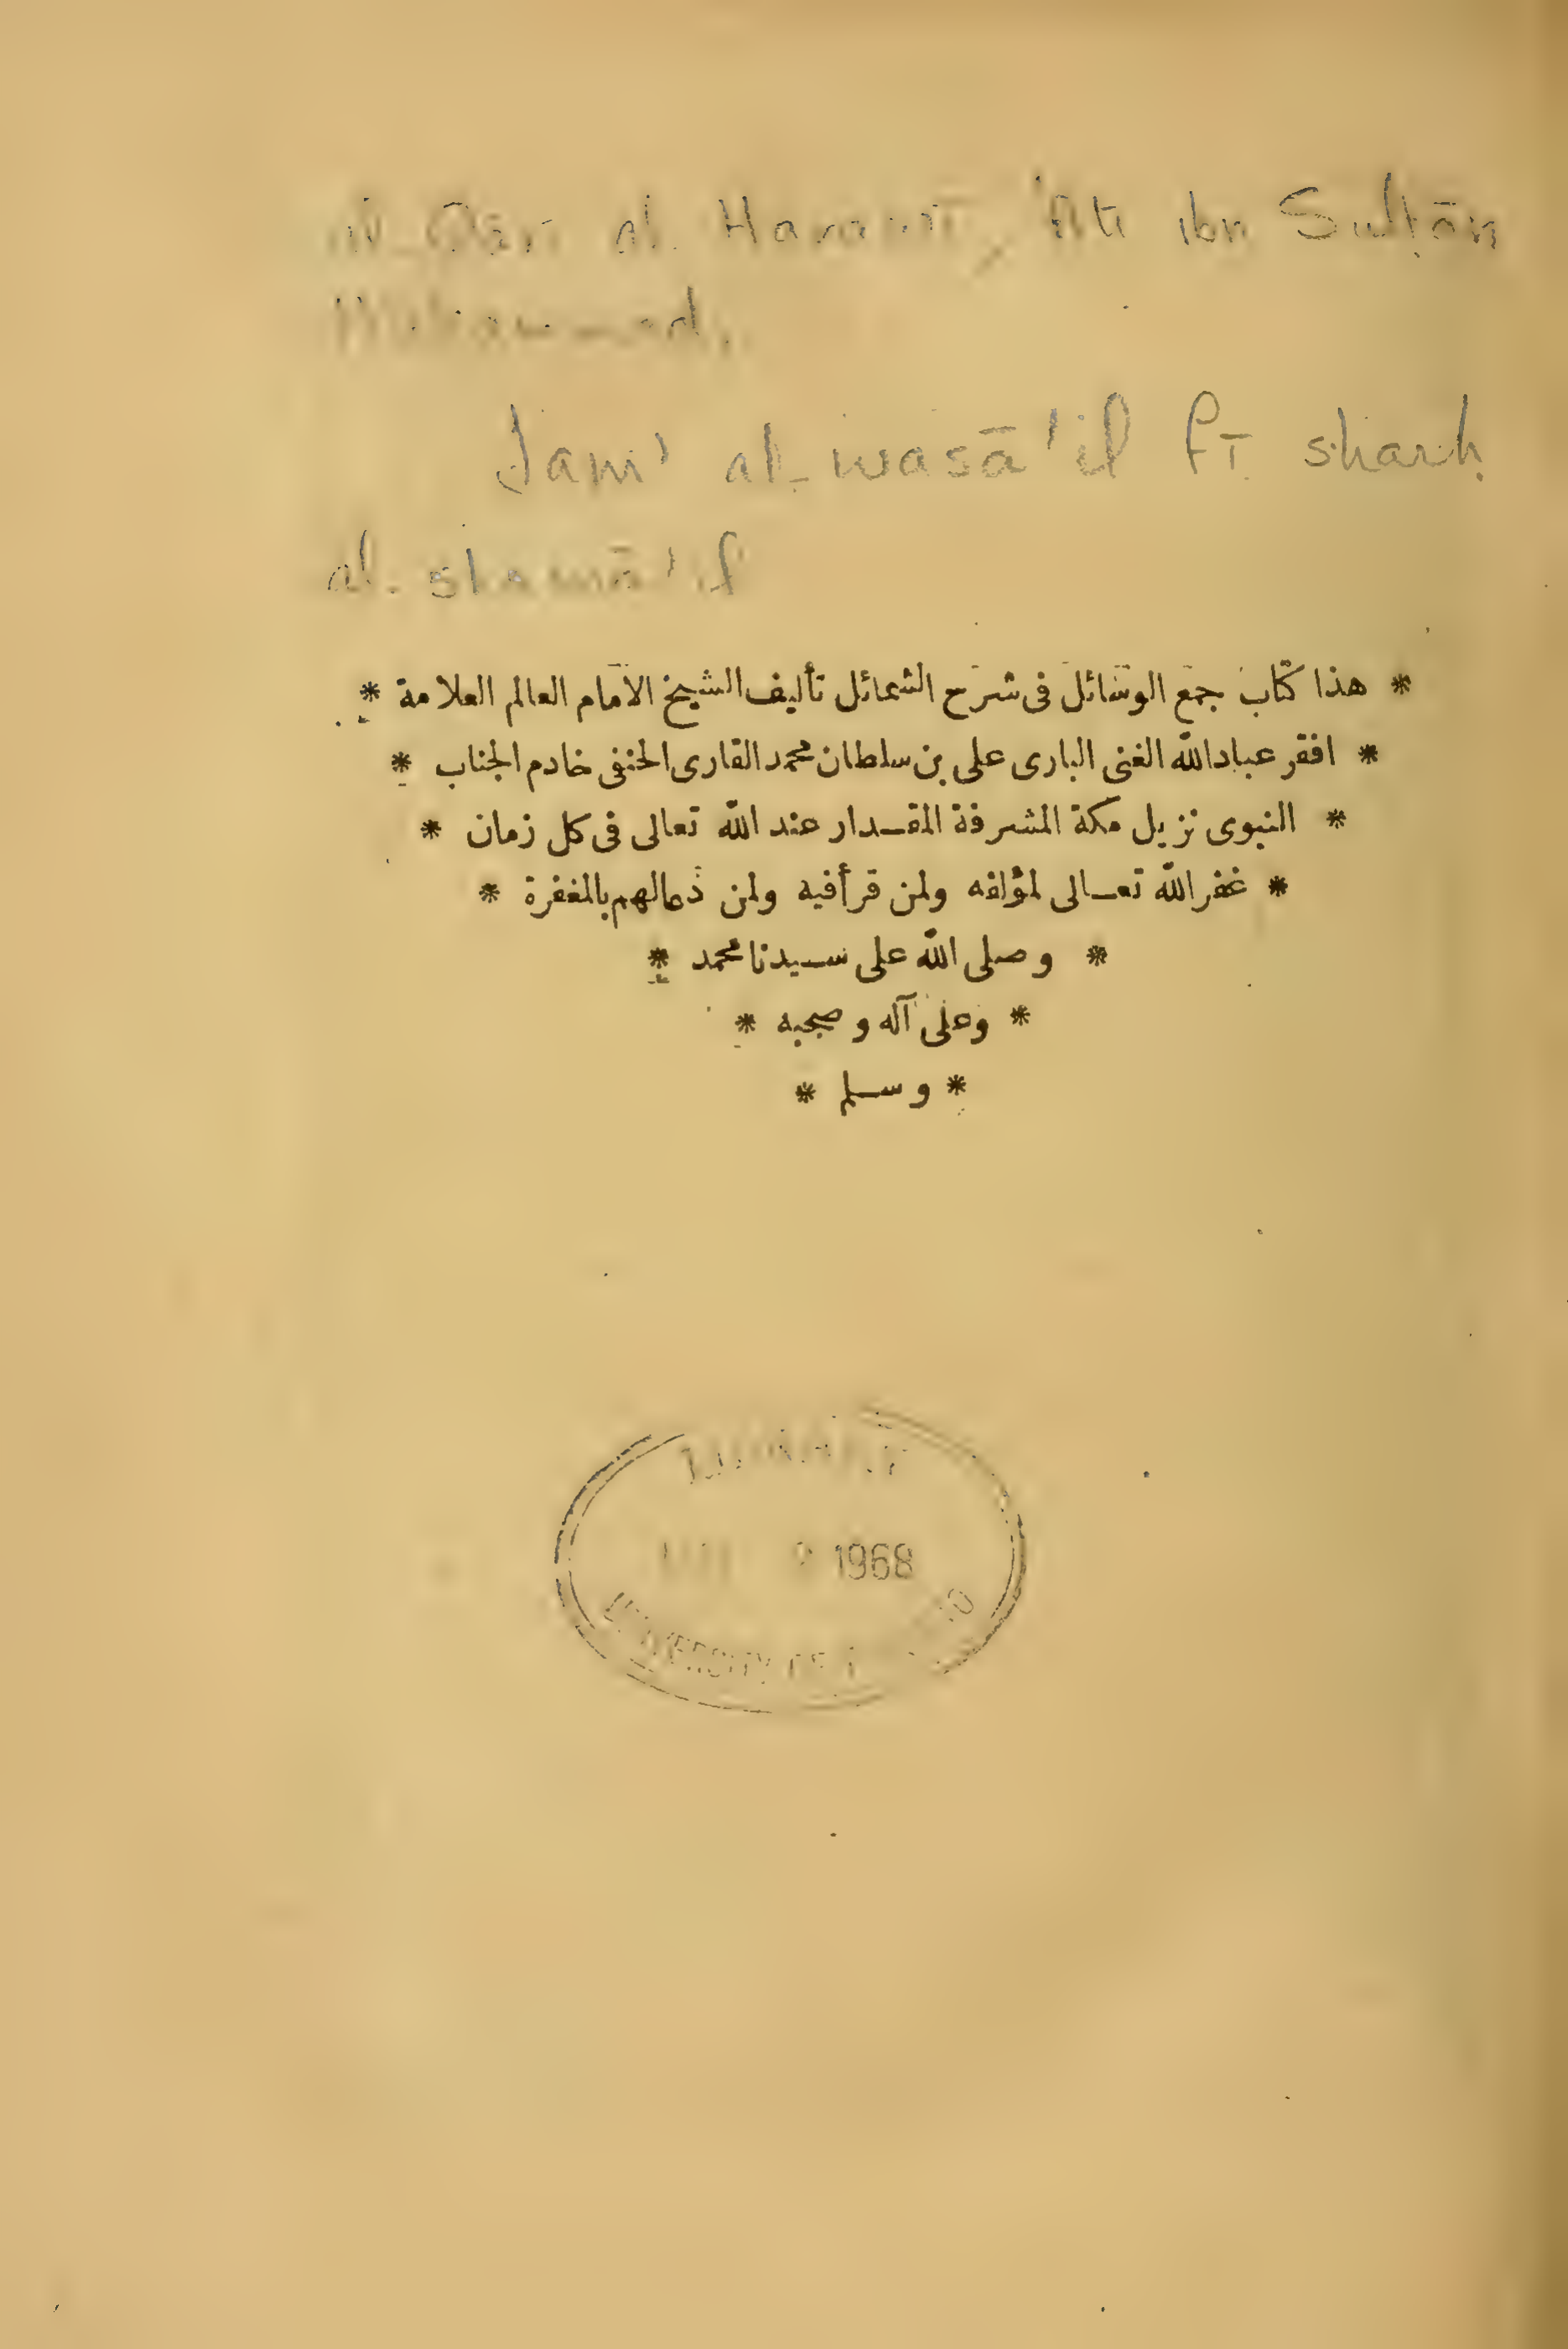 al-Qārī al-Harawī, 'Alī ibn Sulṭān
Muḥammad.
Jam' al-wasā'il fī sharḥ
al-shamā'il
* هذا كتاب جمع الوسائل فى شرح الشمائل تأليف الشيخ الامام العالم العلامة *
* افقر عباد الله الغنى البارى على بن سلطان محمد القارى الحنفى خادم الجناب *
* النبوى نزيل مكة المشرفة المقدار عند الله تعالى فى كل زمان *
* غفر الله تعالى لمؤلفه ولمن قرأ فيه ولمن دعالهم بالمغفرة *
* وصلى الله على سيدنا محمد *
* وعلى آله وصحبه *
* وسلم *
LIBRARY
1968
UNIVERSITY OF